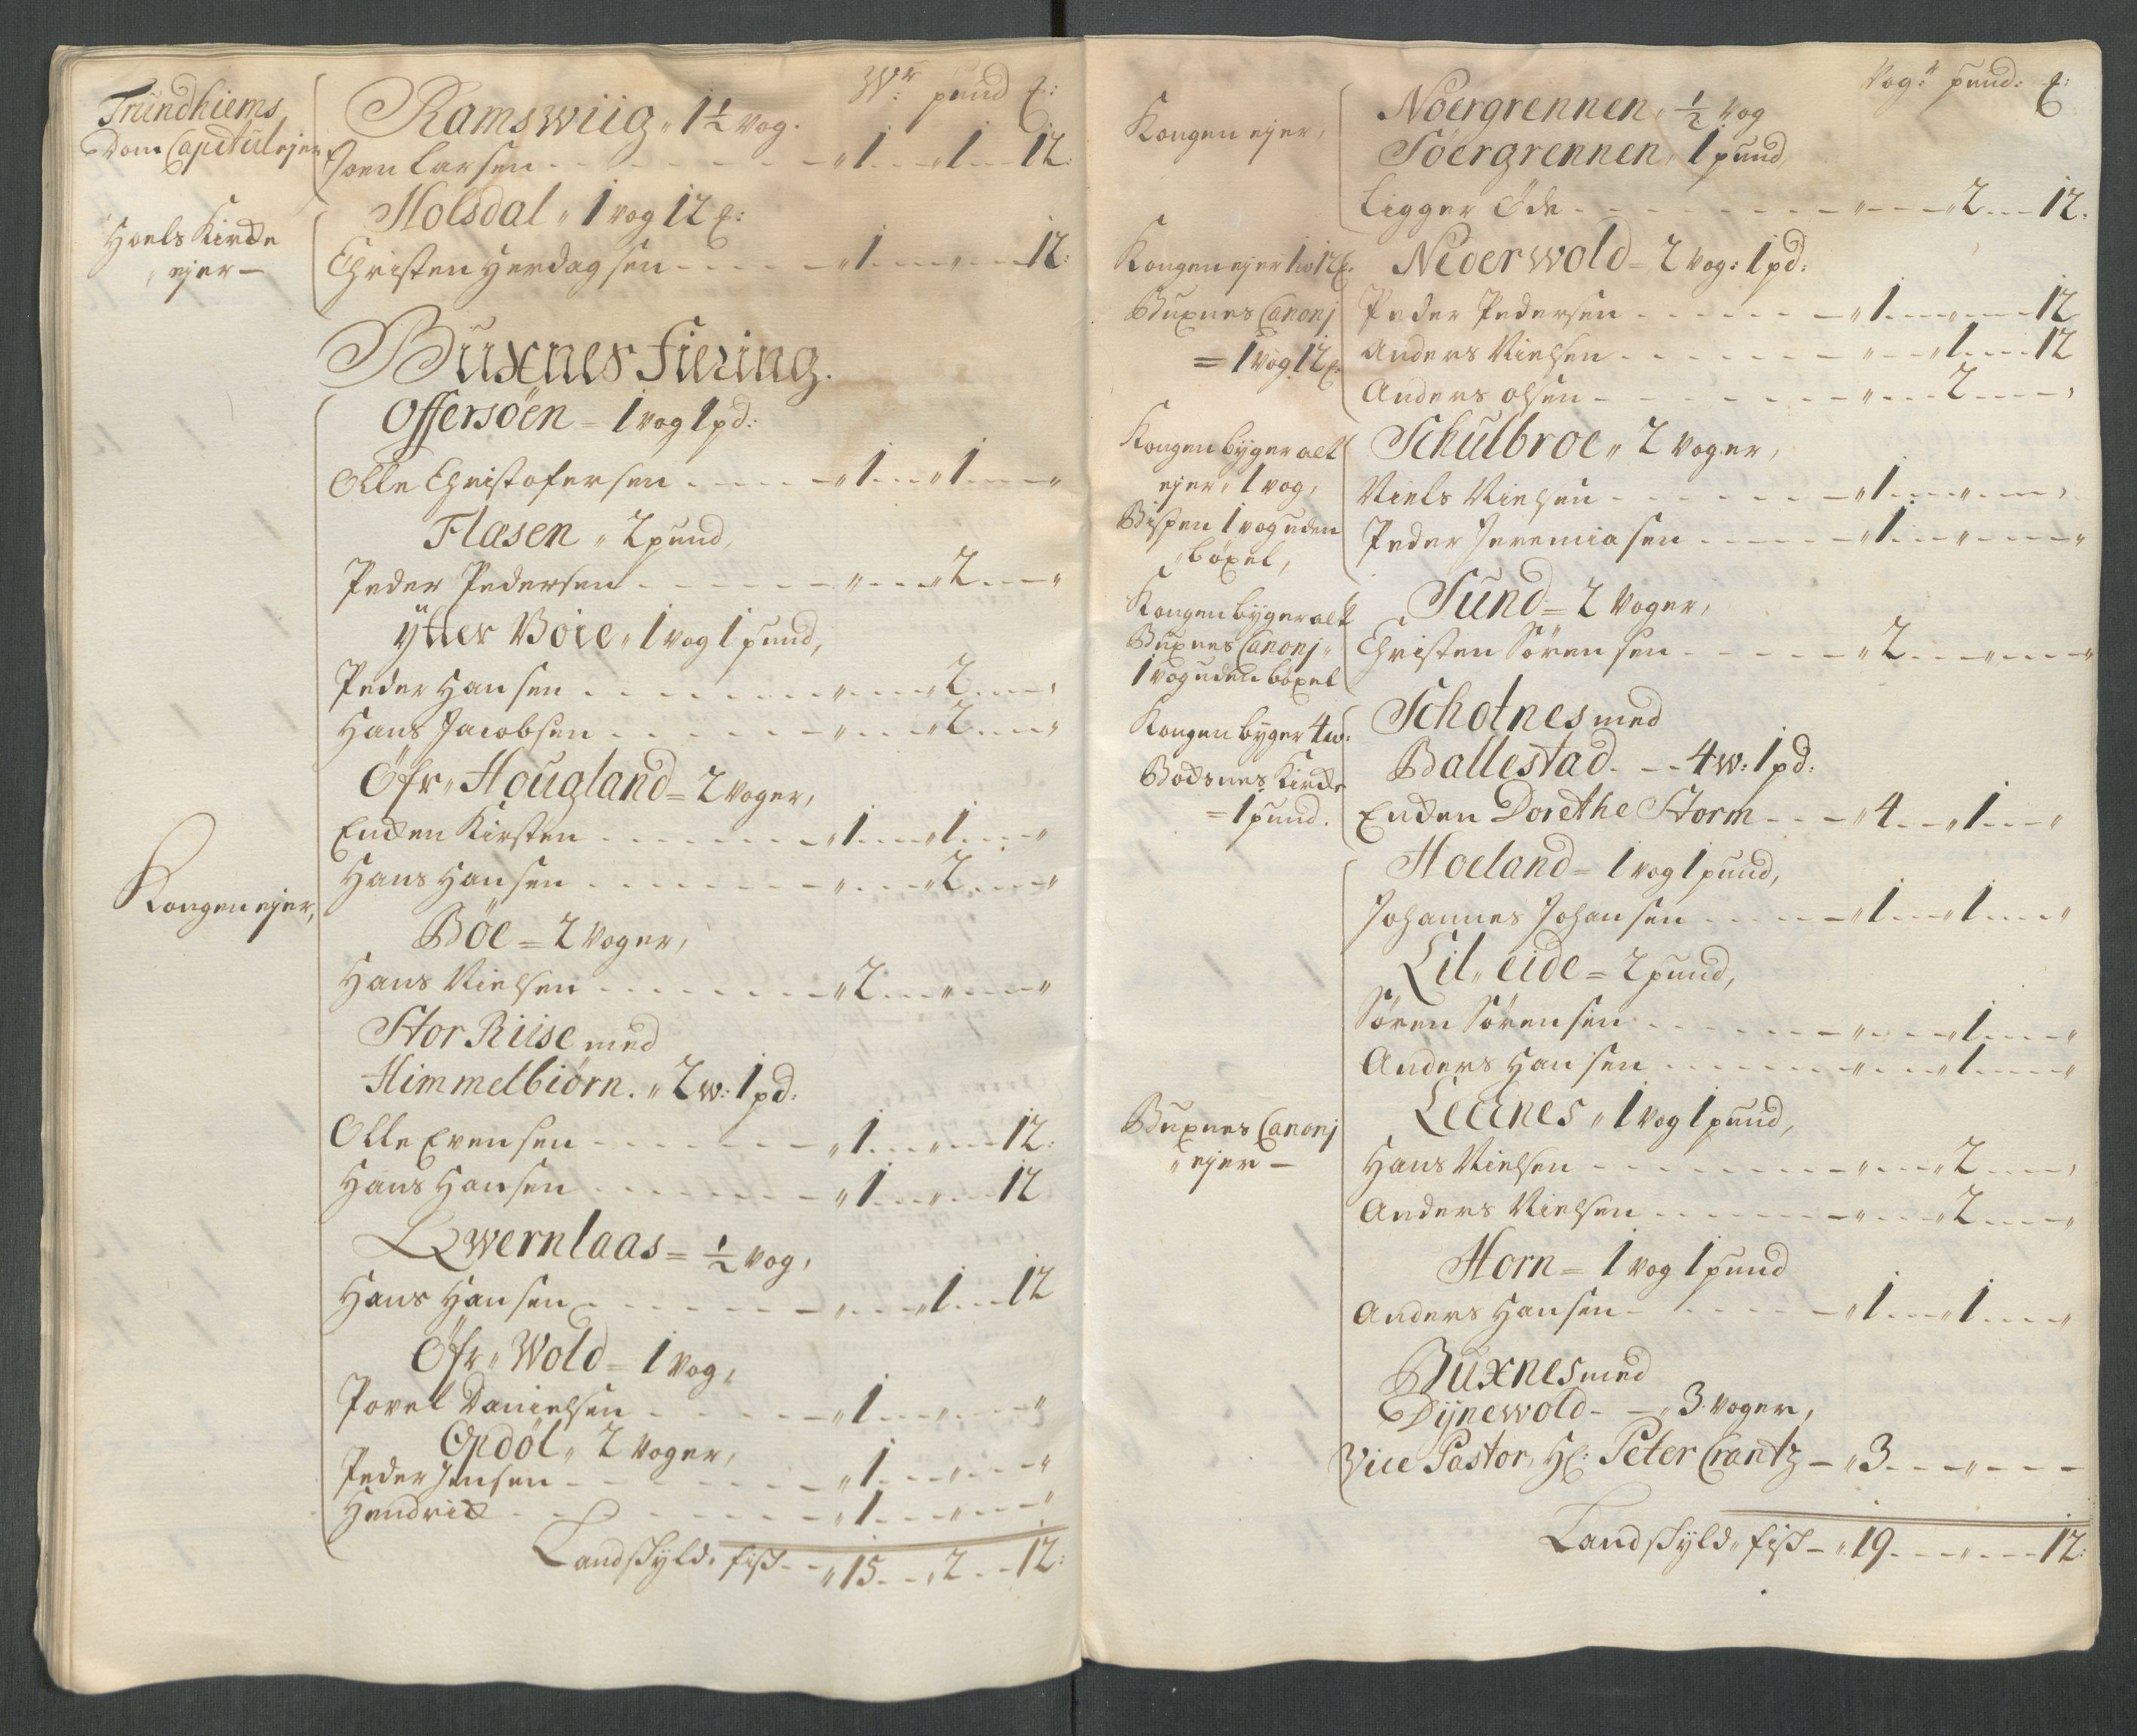 Wr: pund ℔:
Trundhiems
Dom Capitul ejer
Ramswiig „ 1½ vog.
Joen Larsen - - - „ 1 - - „ 1 - - 12:
Holsdal „ 1 vog 12 ℔:
Hoels Kircke
„ ejer -
Christen Herdagsen - - - „ 1 - - „ - - 12:
Buxnes Fiering.
Offersöen = 1 vog 1 pd:
Olle Christofersen - - - „ 1 - - „ 1 - - „
Flasen „ 2 pund,
Peder Pedersen - - - „ - - „ 2 - - „
Ytter Böie „ 1 vog 1 pund,
Peder Hansen - - - „ - - „ 2 - - ,
Hans Jacobsen - - - „ - - „ 2 - - „
Öfr „ Hougland = 2 voger,
Encken Kirsten - - - „ 1 - - „ 1 - - „
Hans Hansen - - - „ - - „ 2 - - „
Kongen ejer,
Böe = 2 voger,
Hans Nielsen - - - „ 2 - - „ - - „
Stor Riise med
Himmelbiörn. „ 2 w: 1 pd:
Olle Evensen - - - „ 1 - - „ - - 12:
Hans Hansen - - - „ 1 - - „ - - 12
Qwernlaas = ½ vog,
Hans Hansen - - - „ - - „ 1 - - 12
Öfr „ Wold = 1 vog,
Povel Danielsen - - - „ 1 - - „ - - „
Opdöl „ 2 voger,
Peder Jensen - - - „ 1 - - „ - - „
Hendrick - - - „ 1 - - „ - - „
Landskyld „ fisk - - „ 15 - - „ 2 - - 12:
Vog:r pund: ℔:
Kongen ejer,
Noergrennen, ½ vog
Söergrennen, 1 pund,
Ligger Öde - - - „ - - „ 2 - - 12.
Kongen ejer 1 w 12 ℔.
Nederwold = 2 vog: 1 pd:
Buxnes Canonj
= 1 vog 12 ℔.
Peder Pedersen - - - „ 1 - - „ - - 12
Anders Nielsen - - - „ - - „ 1 - - 12
Anders Olsen - - - „ - - 2 - - ,
Kongen byger alt
ejer, 1 vog,
Bispen 1 vog uden
„ böxel,
Schulbroe „ 2 voger,
Niels Nielsen - - - „ 1 - - „ - - ,
Peder Jeremiasen - - - „ 1 - - „ - - „
Kongen byger alt
Buxnes Canonj „
1 vog uden böxel
Sund = 2 voger,
Christen Sörensen - - - „ 2 - - „ - - „
Kongen byger 4 w:
Bodsnes Kircke
= 1 pund.
Schotnes med
Ballestad - - 4 w: 1 pd:
Encken Dorethe Storm - - „ 4 - - „ 1 - - „
Hoeland = 1 vog 1 pund,
Johannes Johansen - - - „ 1 - - „ 1 - - „
Lil „ eide = 2 pund,
Sören Sörensen - - - „ - - „ 1 - - „
Anders Hansen - - - „ - - „ 1 - - „
Buxnes Canonj
„ ejer -
Lecknes „ 1 vog 1 pund,
Hans Nielsen - - - „ - - „ 2 - - ,
Anders Nielsen - - - „ - - „ 2 - - „
Horn = 1 vog 1 pund
Anders Hansen - - - „ 1 - - „ 1 - - „
Buxnes med
Dynewold - - „ 3 voger,
Vice Pastor, Hr: Peter Crantz - „ 3 - - „ - -
Landskyld „ fisk - „ 19 - - „ - - 12: